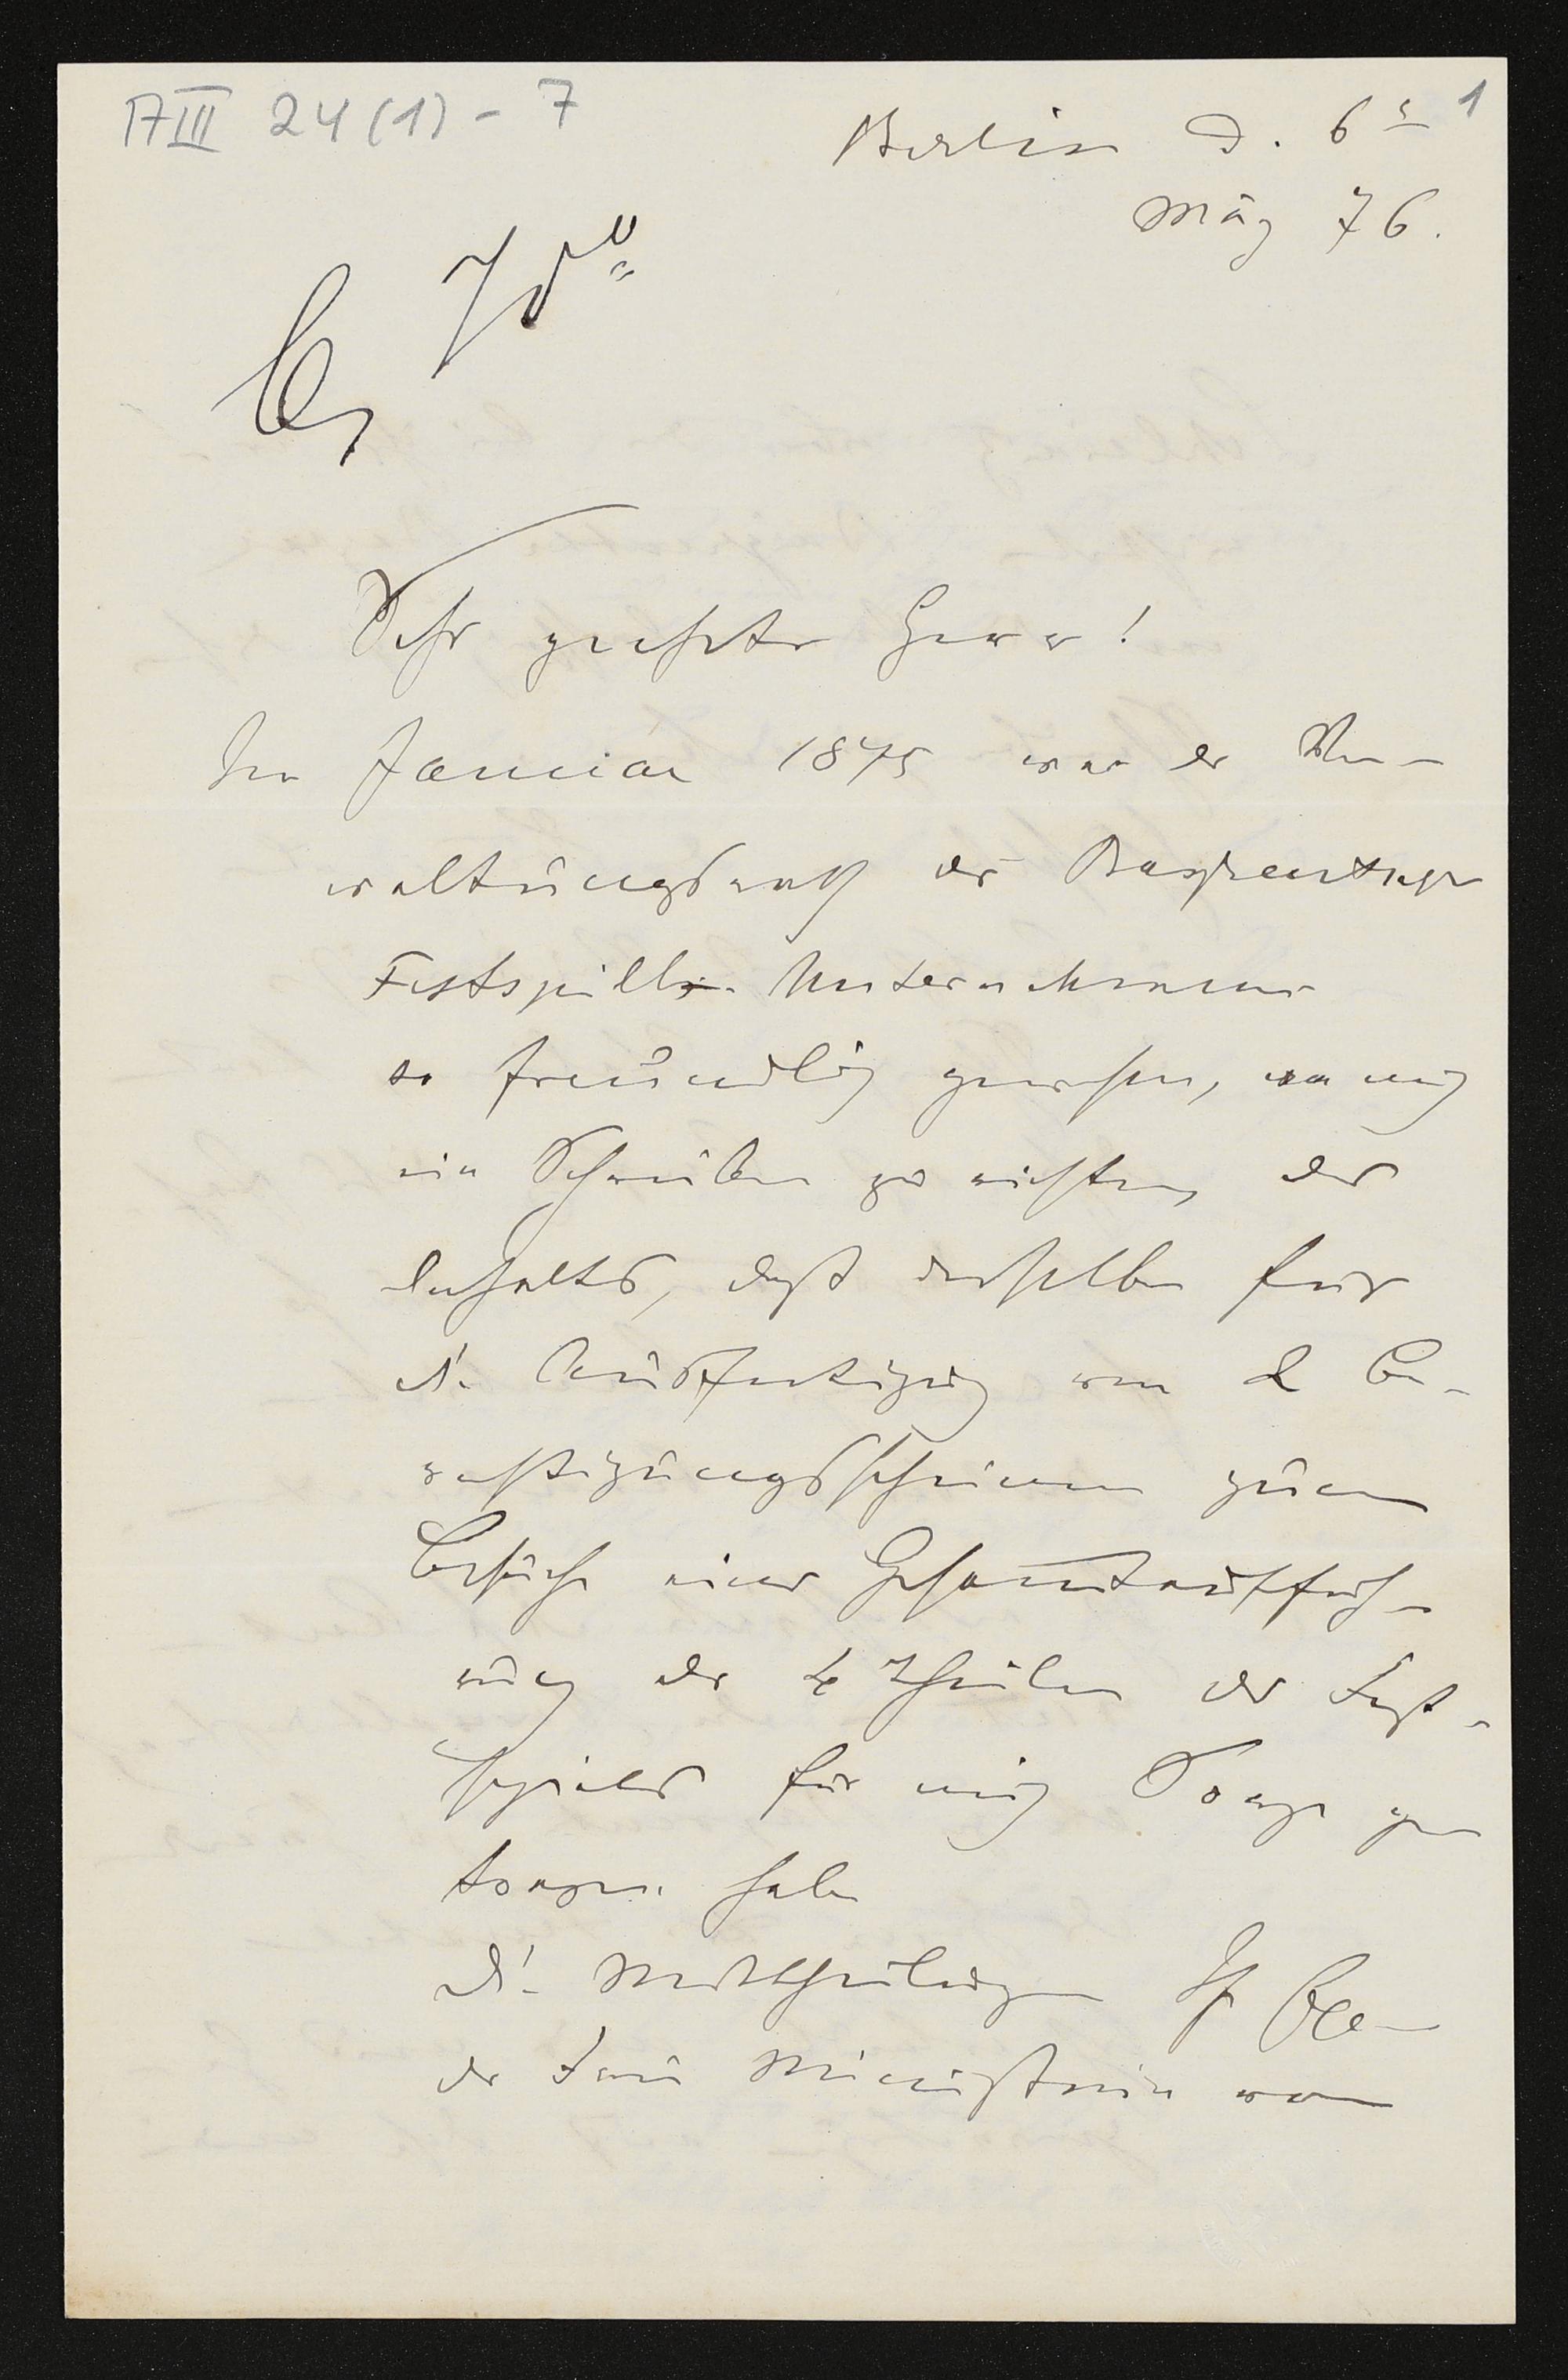 AIII 24(1) - 7
1
Berlin d. 6t
März 76.
Sehr geehrter Herr!
Im Januar 1875 war der Ver-
waltungsrath des Bayreuther
Festspiell Unternehmens
so freundlich gewesen, an mich
ein Schreiben zu richten, des
Inhalts, daß derselbe für
die Ausfertigung von 2 Be-
rechtigungsscheinen zum
Besuche einer Gesammtauffüh-
rung der 4 Theile des Fest-
spieles für mich Sorge ge
tragen habe
Die Mittheilung
der Frau Ministerin von